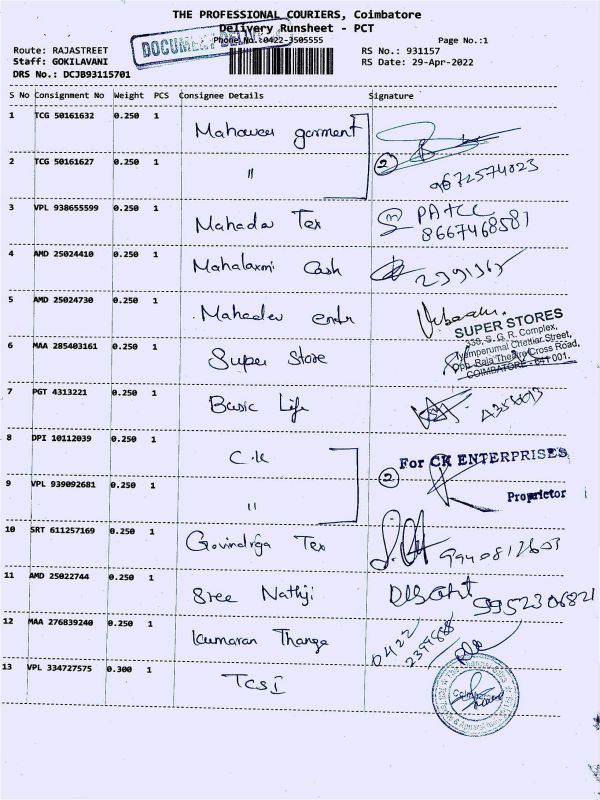 THE PROFESSIONAL COURIERS, Coimbatore
Delivery Runsheet - PCT
Phone No.:0422-3505555 Page No.:1
DOCUMENT
Route: RAJASTREET RS No.: 931157
Staff: GOKILAVANI RS Date: 29-Apr-2022
DRS No.: DCJB93115701
S No Consignment No Weight PCS Consignee Details Signature
1 TCG 50161632 0.250 1 Mahaveer garment
2 TCG 50161627 0.250 1 " 2 9672574023
3 VPL 938655599 0.250 1 Mahadev Tex
8667468581
4 AMD 25024410 0.250 1 Mahalaxmi Cash
5 AMD 25024730 0.250 1 Mahadev entr
SUPER STORES
330, S. G. R. Complex,
Iyamperumal Chettiar Street,
Opp. Raja Theatre Cross Road,
COIMBATORE - 641 001.
6 MAA 285403161 0.250 1 Super Store
7 PGT 4313221 0.250 1 Basic Life
8 DPI 10112039 0.250 1 C.K
For CK ENTERPRISES
9 VPL 939092681 0.250 1 " 2
Proprietor
10 SRT 611257169 0.250 1 Govindrja Tex 9940812603
11 AMD 25022744 0.250 1 Sree Nathji 9952306821
12 MAA 276839240 0.250 1 Kumaran Thanga 0422
2399888
13 VPL 334727575 0.300 1 TCSI